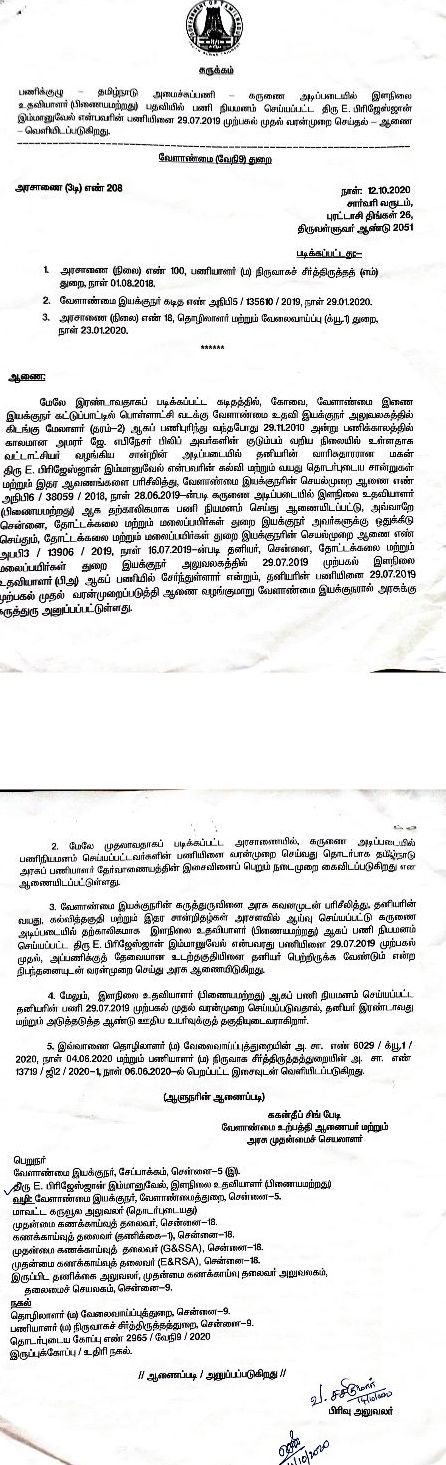 GOVERNMENT OF TAMILNADU
சுருக்கம்
பணிக்குழு – தமிழ்நாடு அமைச்சுப்பணி – கருணை அடிப்படையில் இளநிலை
உதவியாளர் (பிணையமற்றது) பதவியில் பணி நியமனம் செய்யப்பட்ட திரு E. பிரிஜேஸ்ஜான்
இம்மானுவேல் என்பவரின் பணியினை 29.07.2019 முற்பகல் முதல் வரன்முறை செய்தல் – ஆணை
– வெளியிடப்படுகிறது.
வேளாண்மை (வேநி9) துறை
அரசாணை (3டி) எண் 208
நாள்: 12.10.2020
சார்வரி வருடம்,
புரட்டாசி திங்கள் 26,
திருவள்ளுவர் ஆண்டு 2051
படிக்கப்பட்டது:–
1. அரசாணை (நிலை) எண் 100, பணியாளர் (ம) நிருவாகச் சீர்த்திருத்தத் (எம்)
துறை, நாள் 01.08.2018.
2. வேளாண்மை இயக்குநர் கடித எண் அநிபி5 / 135610 / 2019, நாள் 29.01.2020.
3. அரசாணை (நிலை) எண் 18, தொழிலாளர் மற்றும் வேலைவாய்ப்பு (க்யூ.1) துறை,
நாள் 23.01.2020.
******
ஆணை:
மேலே இரண்டாவதாகப் படிக்கப்பட்ட கடிதத்தில், கோவை, வேளாண்மை இணை
இயக்குநர் கட்டுப்பாட்டில் பொள்ளாட்சி வடக்கு வேளாண்மை உதவி இயக்குநர் அலுவலகத்தில்
கிடங்கு மேலாளர் (தரம்–2) ஆகப் பணிபுரிந்து வந்தபோது 29.11.2010 அன்று பணிக்காலத்தில்
காலமான அமரர் ஜே. எபிநேசர் பிலிப் அவர்களின் குடும்பம் வறிய நிலையில் உள்ளதாக
வட்டாட்சியர் வழங்கிய சான்றின் அடிப்படையில் தனியரின் வாரிசுதாரரான மகன்
திரு E. பிரிஜேஸ்ஜான் இம்மானுவேல் என்பவரின் கல்வி மற்றும் வயது தொடர்புடைய சான்றுகள்
மற்றும் இதர ஆவணங்களை பரிசீலித்து, வேளாண்மை இயக்குநரின் செயல்முறை ஆணை எண்
அநிபி6 / 38059 / 2018, நாள் 28.06.2019–ன்படி கருணை அடிப்படையில் இளநிலை உதவியாளர்
(பிணையமற்றது) ஆக தற்காலிகமாக பணி நியமனம் செய்து ஆணையிடப்பட்டு, அவ்வாறே
சென்னை, தோட்டக்கலை மற்றும் மலைப்பயிர்கள் துறை இயக்குநர் அவர்களுக்கு ஒதுக்கீடு
செய்தும், தோட்டக்கலை மற்றும் மலைப்பயிர்கள் துறை இயக்குநரின் செயல்முறை ஆணை எண்
அபபி3 / 13906 / 2019, நாள் 16.07.2019–ன்படி தனியர், சென்னை, தோட்டக்கலை மற்றும்
மலைப்பயிர்கள் துறை இயக்குநர் அலுவலகத்தில் 29.07.2019 முற்பகல் இளநிலை
உதவியாளர் (பிஅ) ஆகப் பணியில் சேர்ந்துள்ளார் என்றும், தனியரின் பணியினை 29.07.2019
முற்பகல் முதல் வரன்முறைப்படுத்தி ஆணை வழங்குமாறு வேளாண்மை இயக்குநரால் அரசுக்கு
கருத்துரு அனுப்பப்பட்டுள்ளது.
2. மேலே முதலாவதாகப் படிக்கப்பட்ட அரசாணையில், கருணை அடிப்படையில்
பணிநியமனம் செய்யப்பட்டவர்களின் பணியினை வரன்முறை செய்வது தொடர்பாக தமிழ்நாடு
அரசுப் பணியாளர் தேர்வாணையத்தின் இசைவினைப் பெறும் நடைமுறை கைவிடப்படுகிறது என
ஆணையிடப்பட்டுள்ளது.
3. வேளாண்மை இயக்குநரின் கருத்துருவினை அரசு கவனமுடன் பரிசீலித்து, தனியரின்
வயது, கல்வித்தகுதி மற்றும் இதர சான்றிதழ்கள் அரசளவில் ஆய்வு செய்யப்பட்டு கருணை
அடிப்படையில் தற்காலிகமாக இளநிலை உதவியாளர் (பிணையமற்றது) ஆகப் பணி நியமனம்
செய்யப்பட்ட திரு E. பிரிஜேஸ்ஜான் இம்மானுவேல் என்பவரது பணியினை 29.07.2019 முற்பகல்
முதல், அப்பணிக்குத் தேவையான உடற்தகுதியினை தனியர் பெற்றிருக்க வேண்டும் என்ற
நிபந்தனையுடன் வரன்முறை செய்து அரசு ஆணையிடுகிறது.
4. மேலும், இளநிலை உதவியாளர் (பிணையமற்றது) ஆகப் பணி நியமனம் செய்யப்பட்ட
தனியரின் பணி 29.07.2019 முற்பகல் முதல் வரன்முறை செய்யப்படுவதால், தனியர் இரண்டாவது
மற்றும் அடுத்தடுத்த ஆண்டு ஊதிய உயர்வுக்குத் தகுதியுடைவராகிறார்.
5. இவ்வாணை தொழிலாளர் (ம) வேலைவாய்ப்புத்துறையின் அ. சா. எண் 6029 / க்யூ.1 /
2020, நாள் 04.06.2020 மற்றும் பணியாளர் (ம) நிருவாக சீர்த்திருத்தத்துறையின் அ. சா. எண்
13719 / ஜி2 / 2020–1, நாள் 06.06.2020–ல் பெறப்பட்ட இசைவுடன் வெளியிடப்படுகிறது.
(ஆளுநரின் ஆணைப்படி)
ககன்தீப் சிங் பேடி
வேளாண்மை உற்பத்தி ஆணையர் மற்றும்
அரசு முதன்மைச் செயலாளர்
பெறுநர்
வேளாண்மை இயக்குநர், சேப்பாக்கம், சென்னை–5 (இ).
திரு E. பிரிஜேஸ்ஜான் இம்மானுவேல், இளநிலை உதவியாளர் (பிணையமற்றது)
வழி: வேளாண்மை இயக்குநர், வேளாண்மைத்துறை, சென்னை–5.
மாவட்ட கருவூல அலுவலர் (தொடர்புடையது)
முதன்மை கணக்காய்வுத் தலைவர், சென்னை–18.
கணக்காய்வுத் தலைவர் (தணிக்கை–1), சென்னை–18.
முதன்மை கணக்காய்வுத் தலைவர் (G&SSA), சென்னை–18.
முதன்மை கணக்காய்வுத் தலைவர் (E&RSA), சென்னை–18.
இருப்பிட தணிக்கை அலுவலர், முதன்மை கணக்காய்வு தலைவர் அலுவலகம்,
தலைமைச் செயலகம், சென்னை–9.
நகல்
தொழிலாளர் (ம) வேலைவாய்ப்புத்துறை, சென்னை–9.
பணியாளர் (ம) நிருவாகச் சீர்த்திருத்தத்துறை, சென்னை–9.
தொடர்புடைய கோப்பு எண் 2965 / வேநி9 / 2020
இருப்புக்கோப்பு / உதிரி நகல்.
// ஆணைப்படி / அனுப்பப்படுகிறது //
வ. சசிகுமார்
பிரிவு அலுவலர்